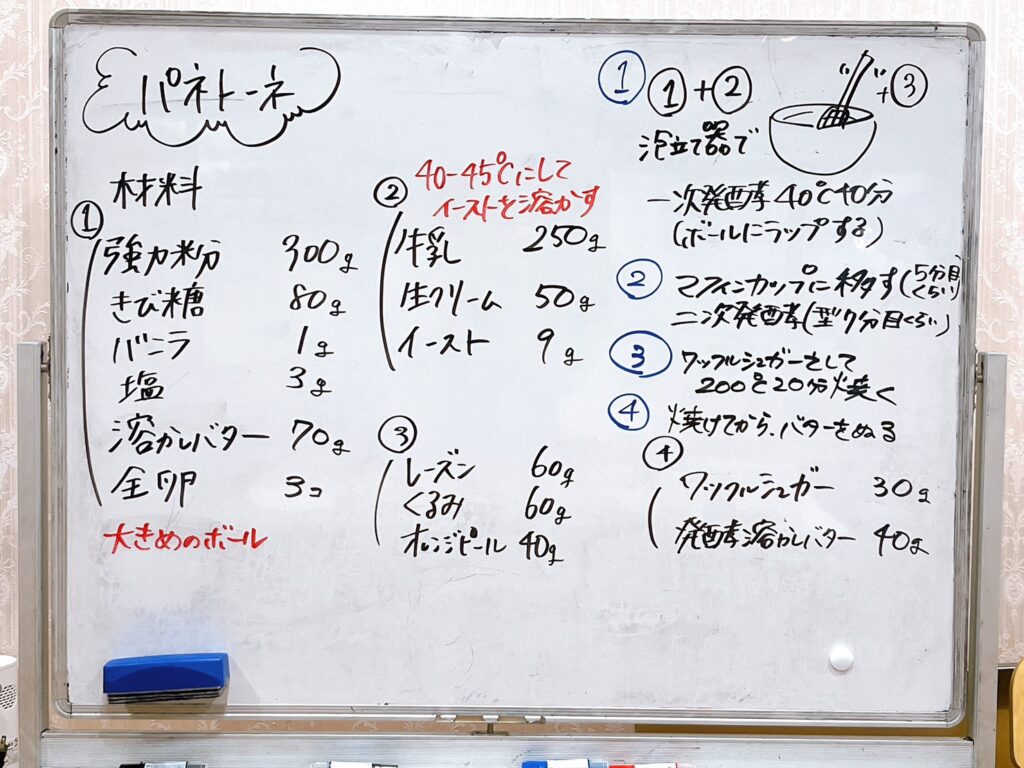 パネトーネ
材料
①
強力粉 300g
きび糖 80g
バニラ 1g
塩 3g
溶かしバター 70g
全卵 3コ
大きめのボール
② 40-45℃にして
イーストを溶かす
牛乳 250g
生クリーム 50g
イースト 9g
③
レーズン 60g
くるみ 60g
オレンジピール 40g
① ①+② +③
泡立て器で
一次発酵40℃40分
(ボールにラップする)
② マフィンカップに移す(5分目くらい)
二次発酵(型7分目くらい)
③ ワッフルシュガーをして
200℃20分焼く
④ 焼けてから、バターをぬる
④
ワッフルシュガー 30g
発酵溶かしバター 40g